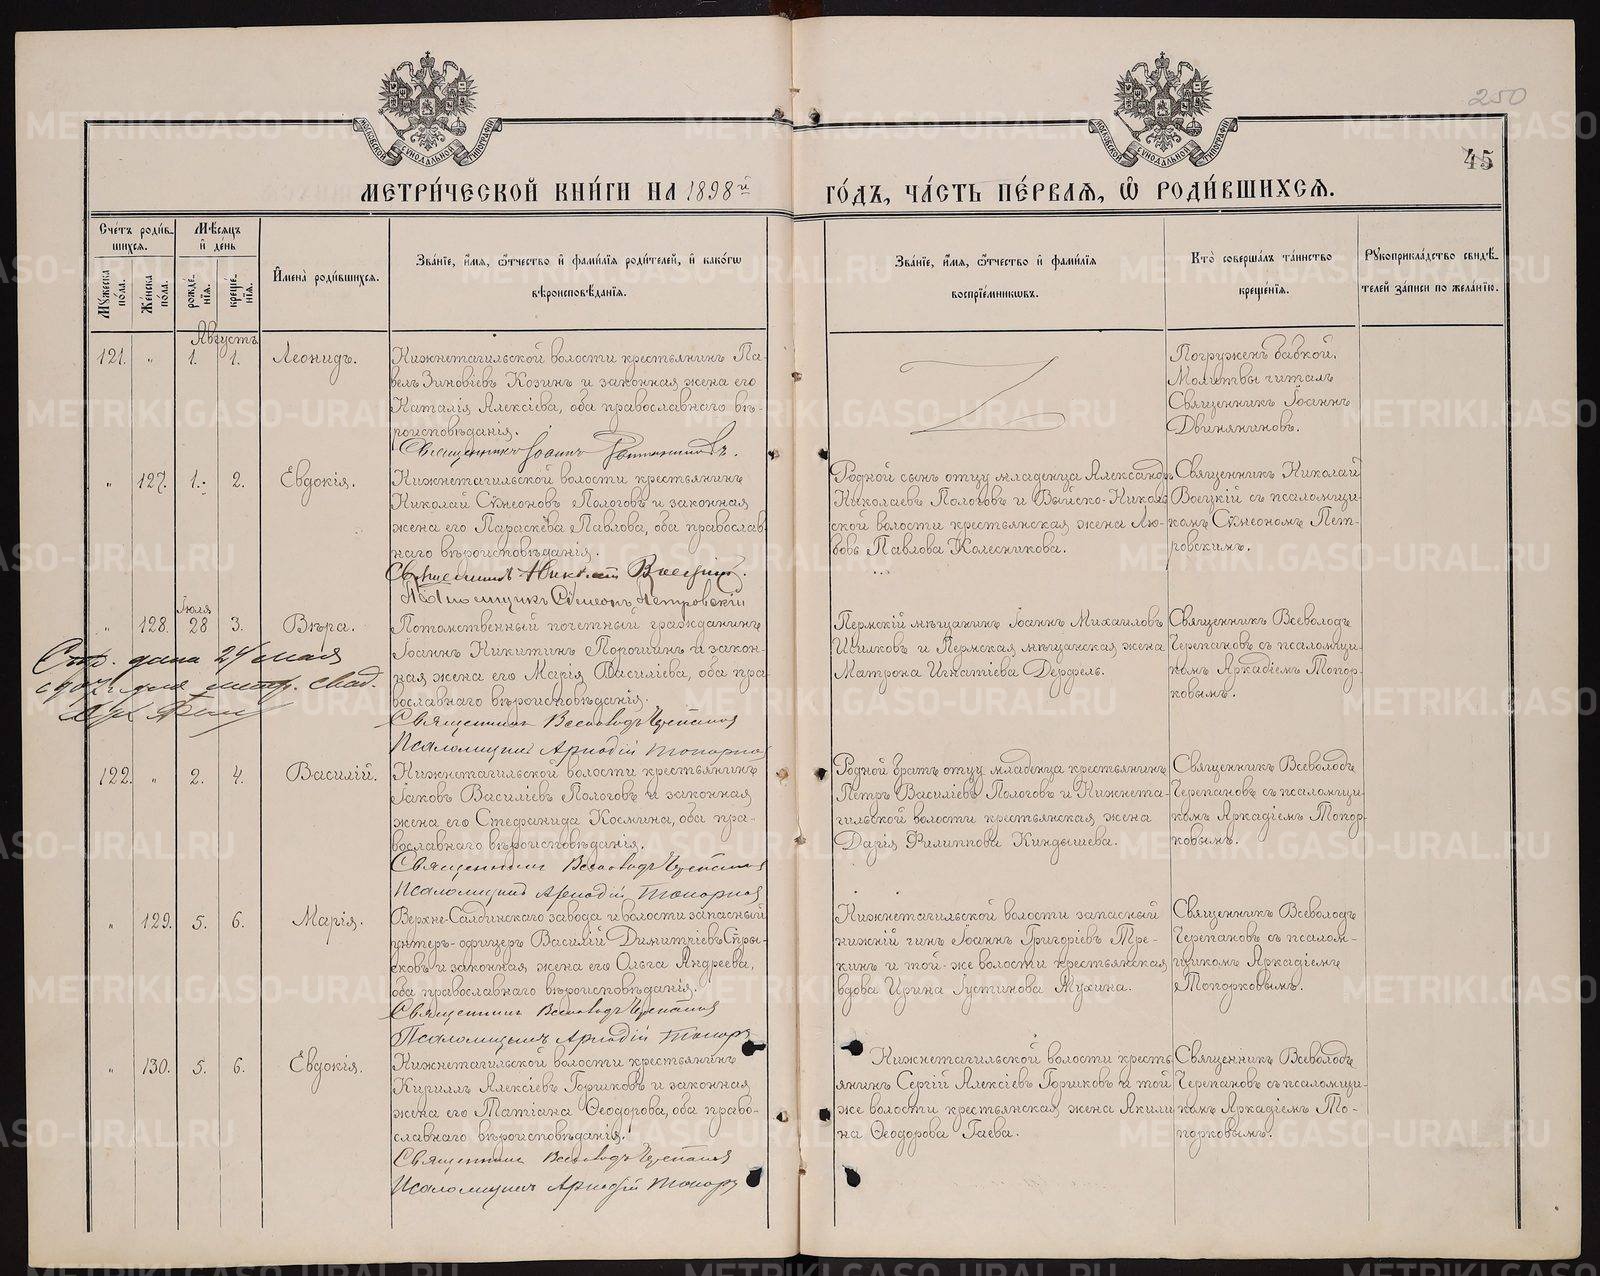 250
45
МОСКОВСКОЙ СѴНОДАЛЬНОЙ ТИПОГРАФІИ
МОСКОВСКОЙ СѴНОДАЛЬНОЙ ТИПОГРАФІИ
МЕТРИ́ЧЕСКОЙ КНИ́ГИ НА 1898й
ГО́ДЪ, ЧА́СТЬ ПЕ́РВАЯ, Ѿ РОДИ́ВШИХСЯ.
Сче́тъ роди́в-
шихся.
Му́жеска по́ла.
Же́нска по́ла.
Мѣ́сяцъ
и де́нь
рожде́-
нія.
креще́-
нія.
Имена̀ роди́вшихся.
Зва́ніе, и́мя, ѻ́тчество и фами́лія роди́телей, и како́гѡ
вѣроисповѣ́данія.
Зва́ніе, и́мя, ѻ́тчество и фами́лія
воспріе́мникѡвъ.
Кто̀ соверша́лъ та́инство
креще́нія.
Рꙋкоприкла́дство свидѣ́-
телей за́писи по жела́нію.
Августъ
121. " 1. 1. Леонидъ.
Нижнетагильской волости крестьянинъ Па-
велъ Зиновіевъ Козинъ и законная жена его
Наталія Алексіева, оба православнаго вѣ-
роисповѣданія.
Священникъ Іоаннъ
Погруженъ бабкой.
Молитвы читалъ
Священникъ Іоаннъ
Двиняниновъ.
" 127. 1. 2. Евдокія.
Нижнетагильской волости крестьянинъ
Николай Сѵмеоновъ Пологовъ и законная
жена его Параскева Павлова, оба православ-
наго вѣроисповѣданія.
Священникъ Николай Воецкій.
Псаломщикъ Сѵмеонъ Петровскій
Родной сынъ отцу младенца Александръ
Николаевъ Пологовъ и Выйско-Николь
ской волости крестьянская жена Лю-
бовь Павлова Колесникова.
Священникъ Николай
Воецкій съ псаломщи-
комъ Сѵмеономъ Пет-
ровскимъ.
Іюля
" 128. 28 3. Вѣра.
Потомственный почетный гражданинъ
Іоаннъ Никитинъ Порошинъ и закон-
ная жена его Марія Василіева, оба пра
вославнаго вѣроисповѣданія.
Священникъ Всеволодъ Черепановъ
Псаломщикъ Аркадій Топорков
дана 24 мая
1907 г. для метр. свид.
Пермскій мѣщанинъ Іоаннъ Михаиловъ
Шилковъ и Пермская мѣщанская жена
Матрона Игнатіева Дерфель.
Священникъ Всеволодъ
Черепановъ съ псаломщи-
комъ Аркадіемъ Топор-
ковымъ.
122. " 2. 4. Василій.
Нижнетагильской волости крестьянинъ
Іаковъ Василіевъ Пологовъ и законная
жена его Стефанида Космина, оба пра-
вославнаго вѣроисповѣданія.
Священникъ Всеволодъ Черепанов
Псаломщикъ Аркадій Топорков
Родной братъ отцу младенца крестьянинъ
Петръ Василіевъ Пологовъ и Нижнета-
гильской волости крестьянская жена
Дарія Филиппова Киндышева.
Священникъ Всеволодъ
Черепановъ съ псаломщи-
комъ Аркадіемъ Топор-
ковымъ.
" 129. 5. 6. Марія.
Верхне-Салдинскаго завода и волости запасный
унтеръ-офицеръ Василій Димитріевъ Спры-
сковъ и законная жена его Ольга Андреева,
оба православнаго вѣроисповѣданія.
Священникъ Всеволодъ Черепанов
Псаломщикъ Аркадій Топор
Нижнетагильской волости запасный
нижній чинъ Іоаннъ Григоріевъ Тре-
кинъ и той-же волости крестьянская
вдова Ирина Іустинова Мухина.
Священникъ Всеволодъ
Черепановъ съ псалом-
щикомъ Аркадіемъ
Топорковымъ.
" 130. 5. 6. Евдокія.
Нижнетагильской волости крестьянинъ
Кириллъ Алексіевъ Горшковъ и законная
жена его Татіана Ѳеодорова, оба право-
славнаго вѣроисповѣданія.
Священникъ Всеволодъ Черепанов
Псаломщикъ Аркадій Топор
Нижнетагильской волости кресть
янинъ Сергій Алексіевъ Горшковъ и той
же волости крестьянская жена Акили
на Ѳеодорова Гаева.
Священникъ Всеволодъ
Черепановъ съ псаломщи-
комъ Аркадіемъ То-
порковымъ.
METRIKI.GASO-URAL.RU